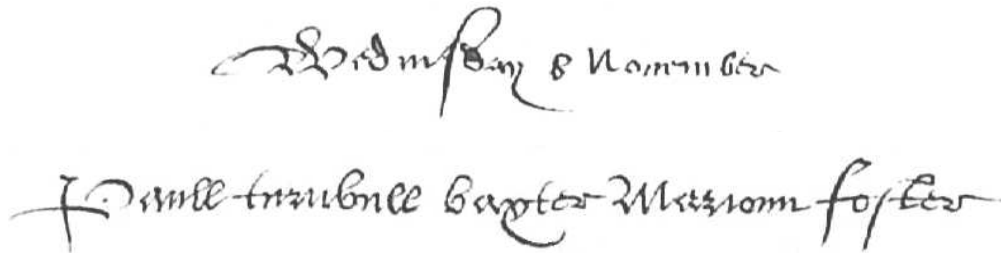 Wednisday 8 November
Paull turnbull baxter Marionn foster